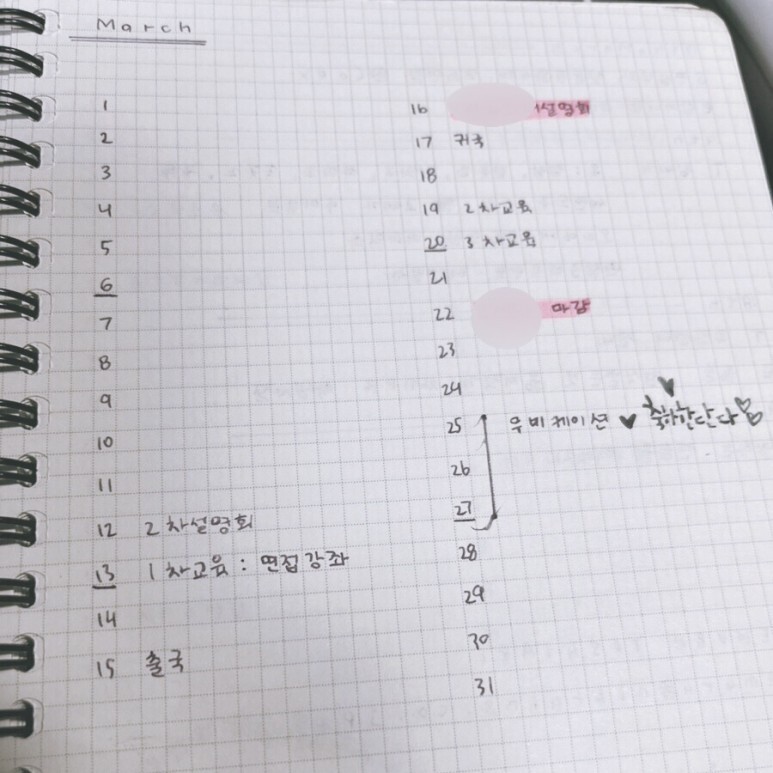 March
1
2
3
4
5
6
7
8
9
10
11
12 2차설명회
13 1차교육 : 면접강좌
14
15 출국
16 설명회
17 귀국
18
19 2차교육
20 3차교육
21
22 마감
23
24
25 우비케이션 ♥ 축하한단다♡
26
27
28
29
30
31